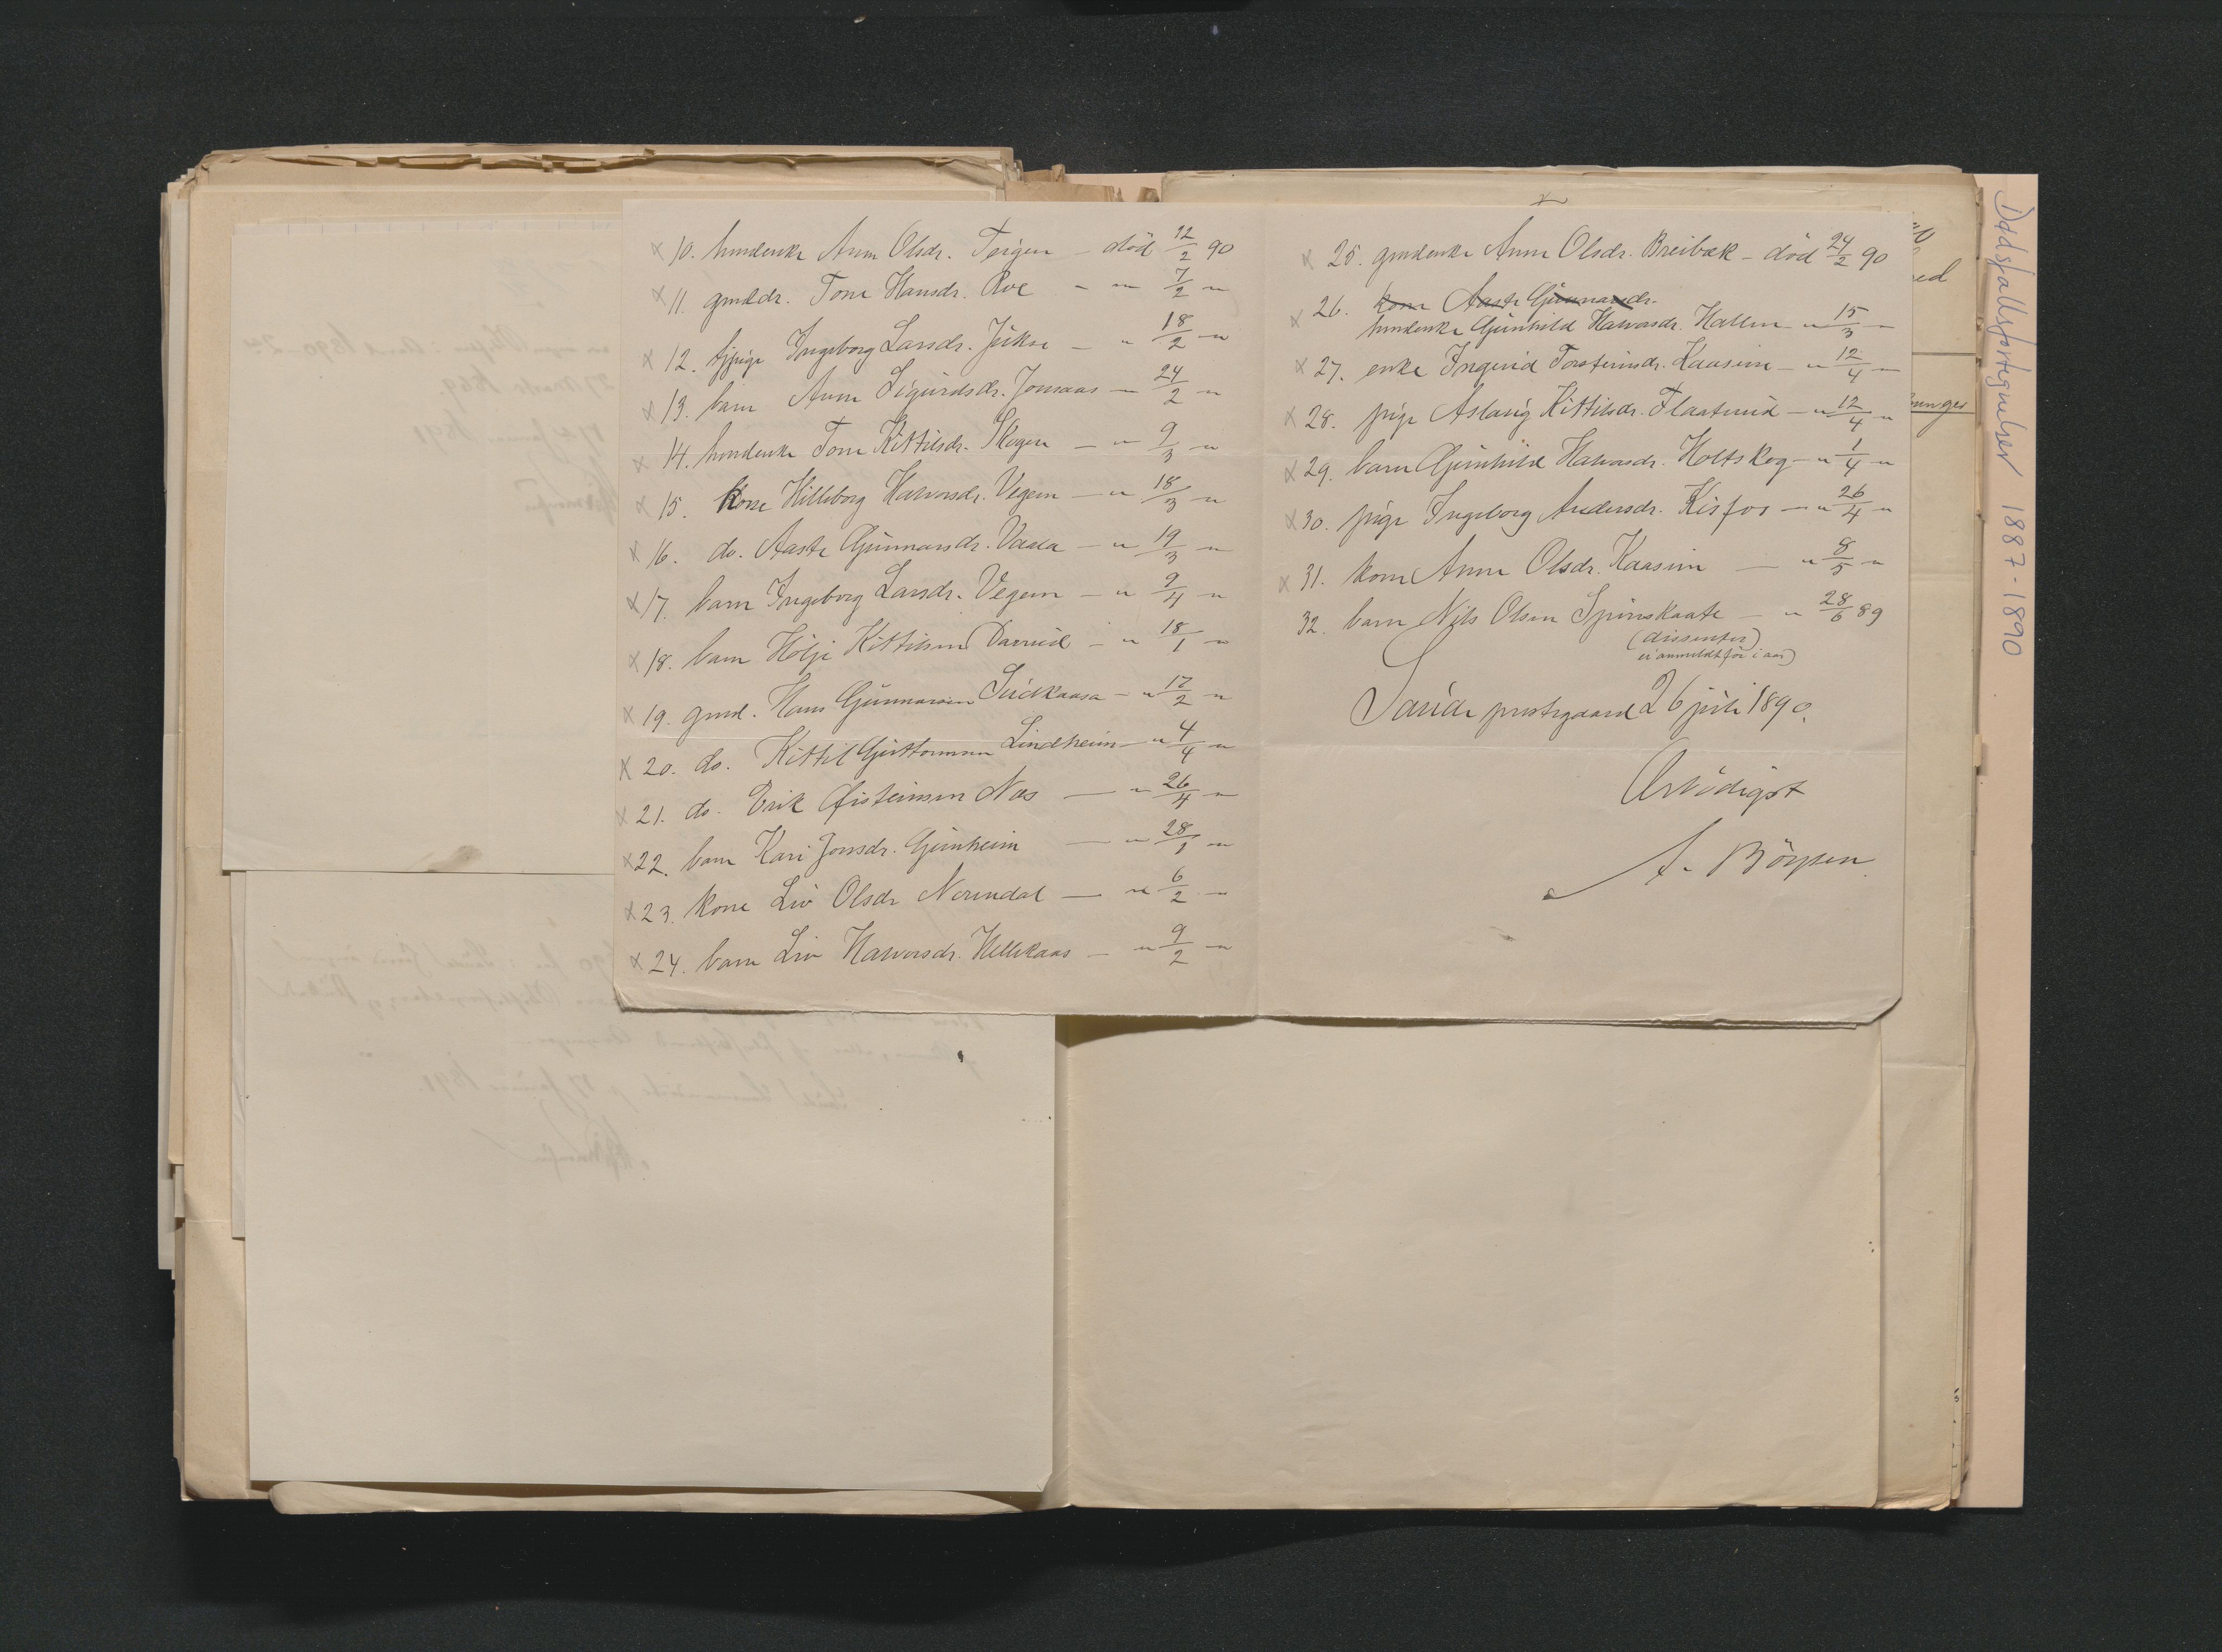 x 10. husmdenke Anne Olsdr. Teigen - död 12/2 90
x 11. gmldr. Tone Hansdr. Roe - " 7/2 "
x 12. tjpige Ingeborg Larsdr. Jukse - " 18/2 "
x 13. barn Anne Sigurdsdr. Jonsaas - 24/2 "
x 14. husmdenke Tone Kittilsdr. Skogen - " 9/3 "
x 15. kone Hilleborg Halvorsdr. Vegem - " 18/3 "
x 16. do. Aaste Gunnarsdr. Vaala - " 19/3 "
x 17. barn Ingeborg Larsdr. Vegem - " 9/4 "
x 18. barn Hölje Kittilsen Darrud - " 18/1 "
x 19. gmd. Hans Gunnarsen Sudkaasa - " 17/2 "
x 20. do. Kittil Guttormsen Lindheim - " 4/4 "
x 21. do. Erik Øisteinsen Næs - " 26/4 "
x 22. barn Kari Jonsdr. Gunheim - " 28/1 "
x 23. kone Liv Olsdr Norendal - " 6/2 "
x 24. barn Liv Halvorsdr. Hellekaas - " 9/2 "
x 25. gmdenke Anne Olsdr. Breibæk - död 24/2 90
x 26. kone Aaste Gunnarsdr.
husmdenke Gunhild Halvorsdr. Hallen - " 15/3 "
x 27. enke Ingerid Torsteinsdr. Kaasine - " 12/4 "
x 28. pige Aslaug Kittilsdr. Flaatnud - " 12/4 "
x 29. barn Gunhild Halvorsdr. Holtskog - " 1/4 "
x 30. pige Ingeborg Andersdr. Kisfos - " 26/4 "
x 31. kone Anne Olsdr. Kaasine - " 8/5 "
32. barn Nils Olsen Spinskaate - " 28/6 89
(dissenter)
ei anmeldt för i aar)
Saude prestegaard 26 juli 1890.
Ærbödigst
A. Börresen
Dødsfallsfortegnelser 1887-1890